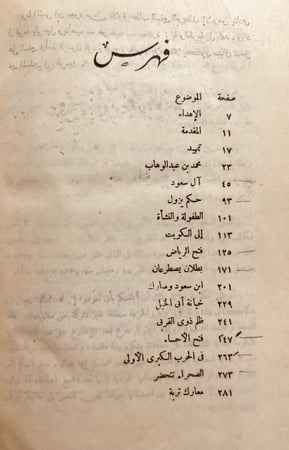 فهرس
صفحة الموضوع
٧ الإهداء
١١ المقدمة
١٧ تمهيد
٢٣ محمد بن عبد الوهاب
٤٥ آل سعود
٩٣ حكم يزول
١٠١ الطفولة والنشأة
١١٣ إلى الكويت
١٢٥ فتح الرياض
١٧١ بطلان يصطرعان
٢٠١ ابن سعود ومبارك
٢٢٩ خيانة أبى الخيل
٢٤١ ظلم ذوى القربى
٢٤٧ فتح الأحساء
٢٦٣ فى الحرب الكبرى الأولى
٢٧٣ الصحراء تتحضر
٢٨١ معارك تربة